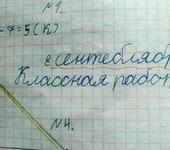 №1.
-x=5(К)
8 сентебляб
Классная работ
№4.